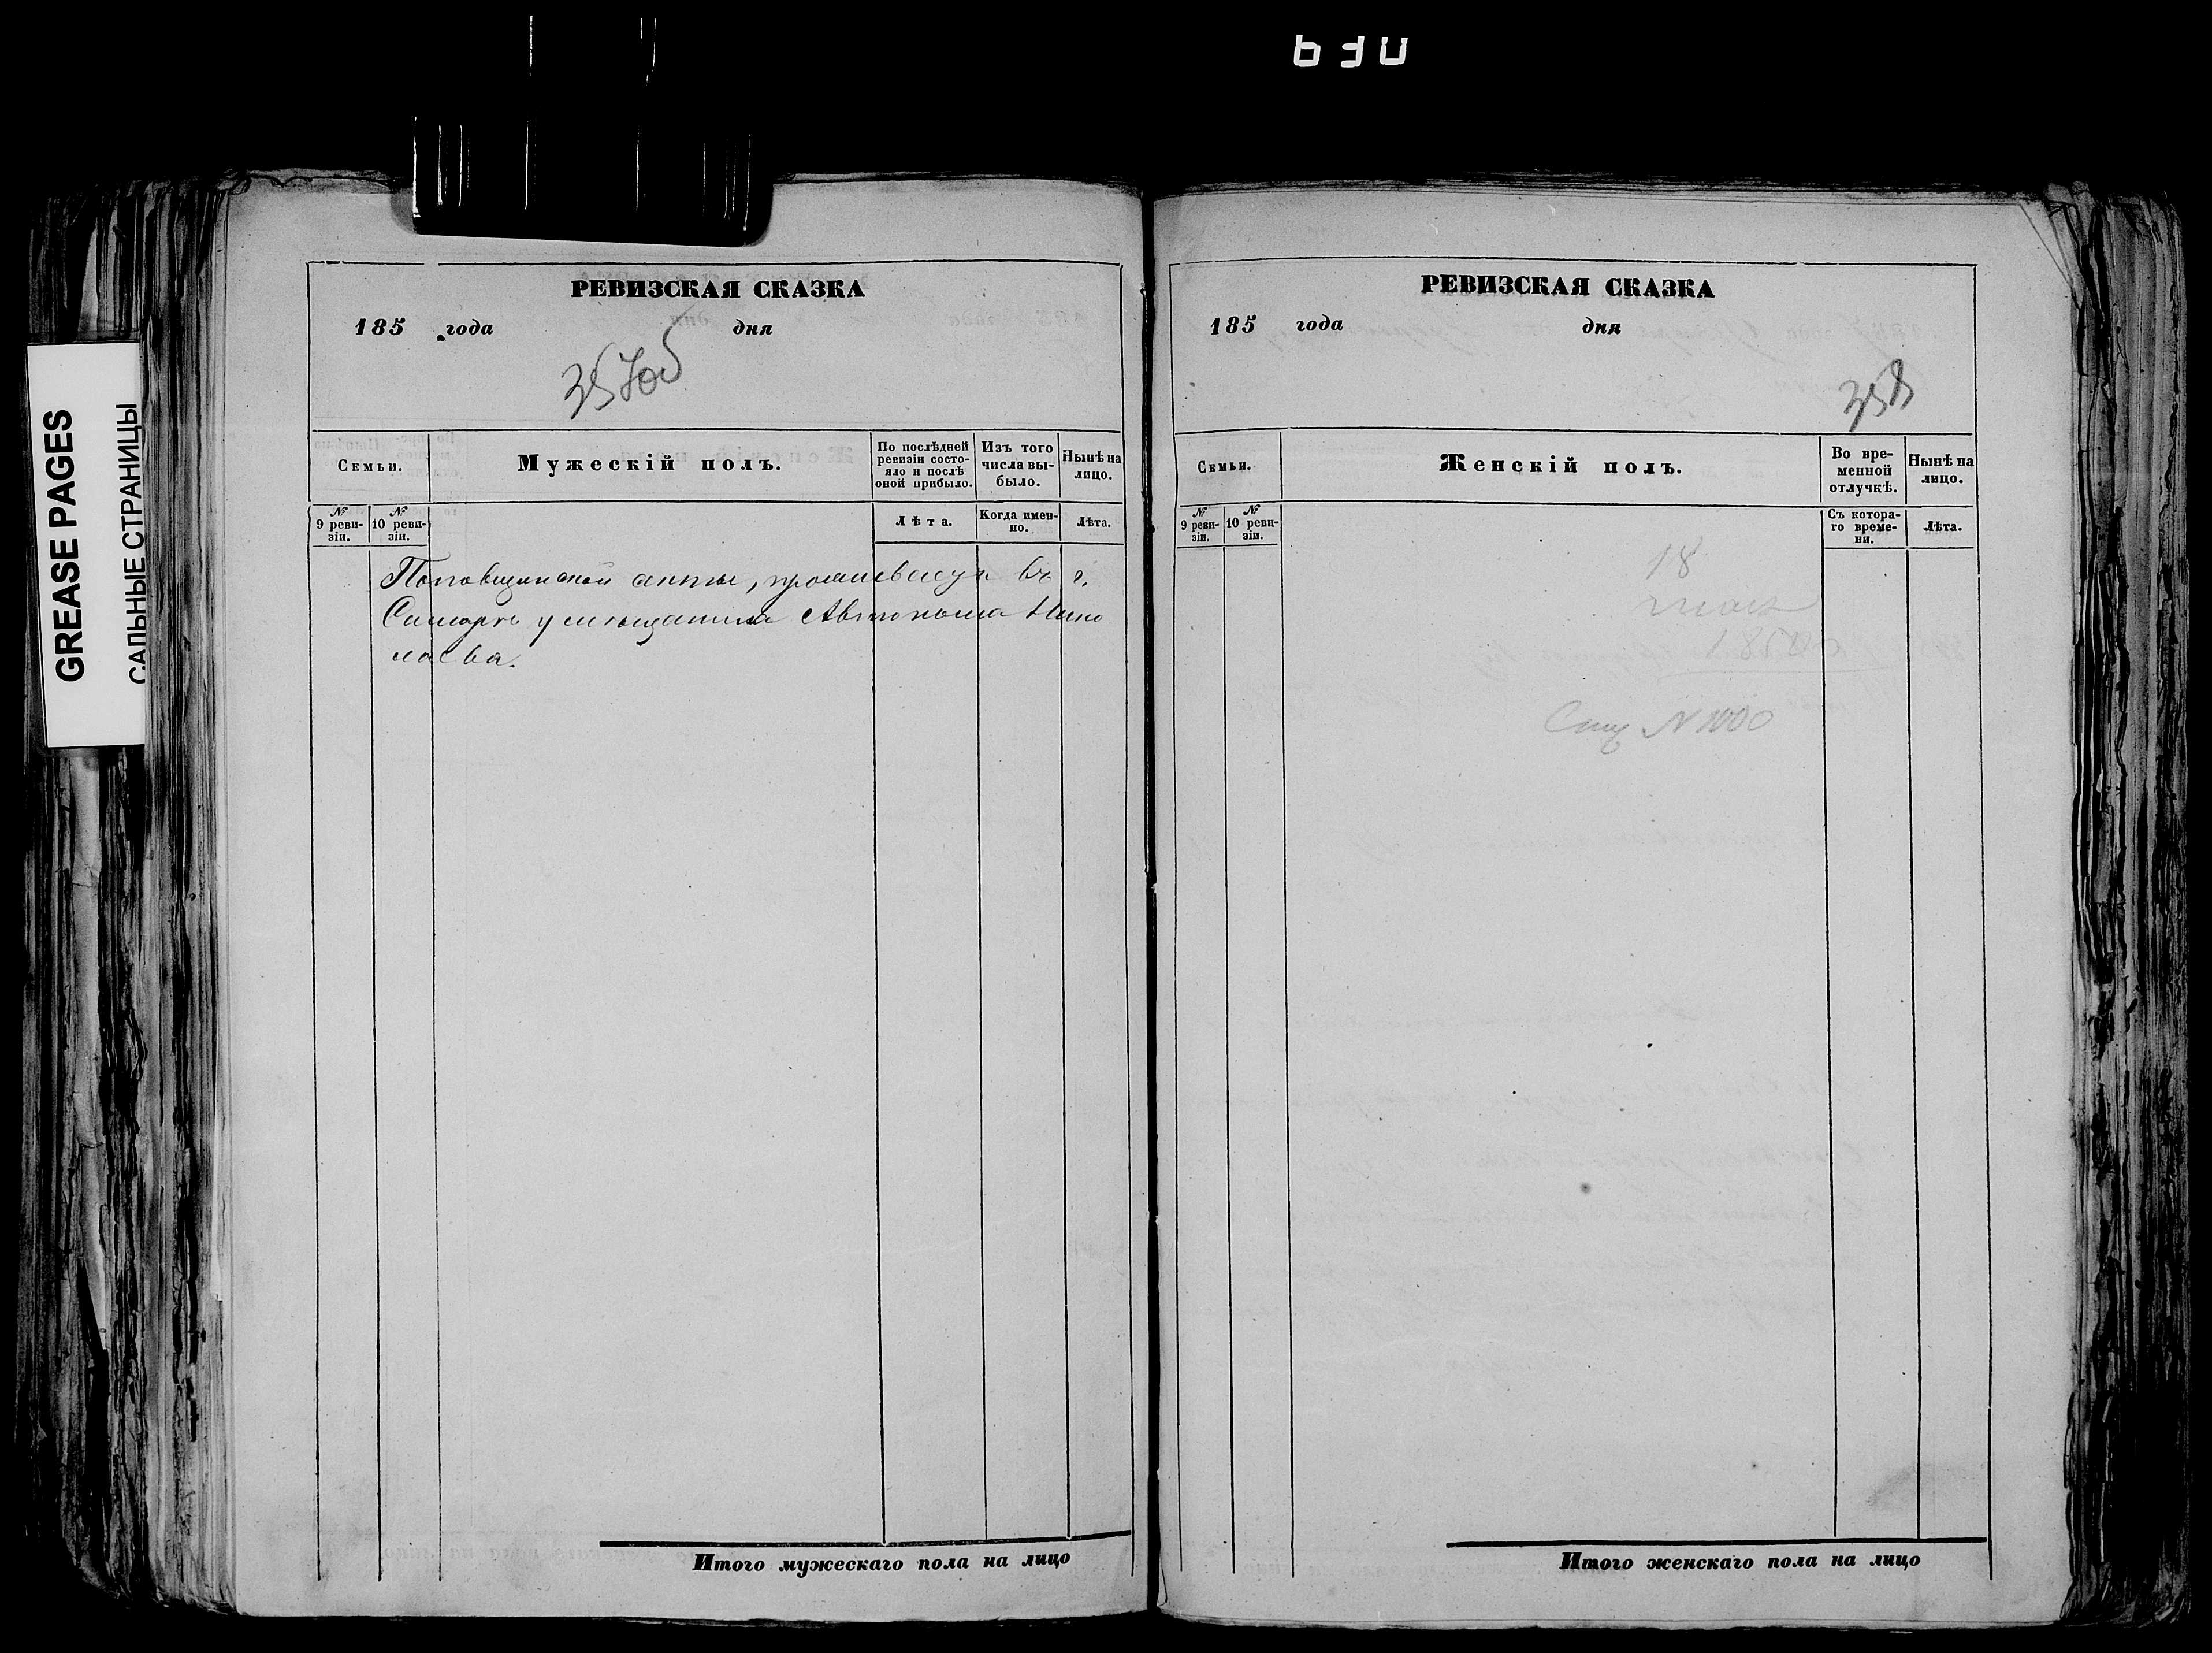 GREASE PAGES
САЛЬНЫЕ СТРАНИЦЫ
РЕВИЗСКАЯ СКАЗКА
185 года дня
357об
Семьи.
Мужескій полъ.
По послѣдней ревизіи состо-
яло и послѣ
оной прибыло.
Изъ того
числа вы-
было.
Нынѣ на
лицо.
№
9 реви-
зіи.
№
10 реви-
зіи.
Лѣта.
Когда имен-
но.
Лѣта.
Поповщинской секты, проживаетъ въ г.
Самарѣ у мѣщанина Автонома Нико
лаева.
Итого мужескаго пола на лицо
РЕВИЗСКАЯ СКАЗКА
185 года дня
358
Семьи.
Женскій полъ.
Во вре-
менной
отлучкѣ.
Нынѣ на
лицо.
№
9 реви-
зіи.
№
10 реви-
зіи.
Съ котора-
го време-
ни.
Лѣта.
18
N 1000
Итого женскаго пола на лицо